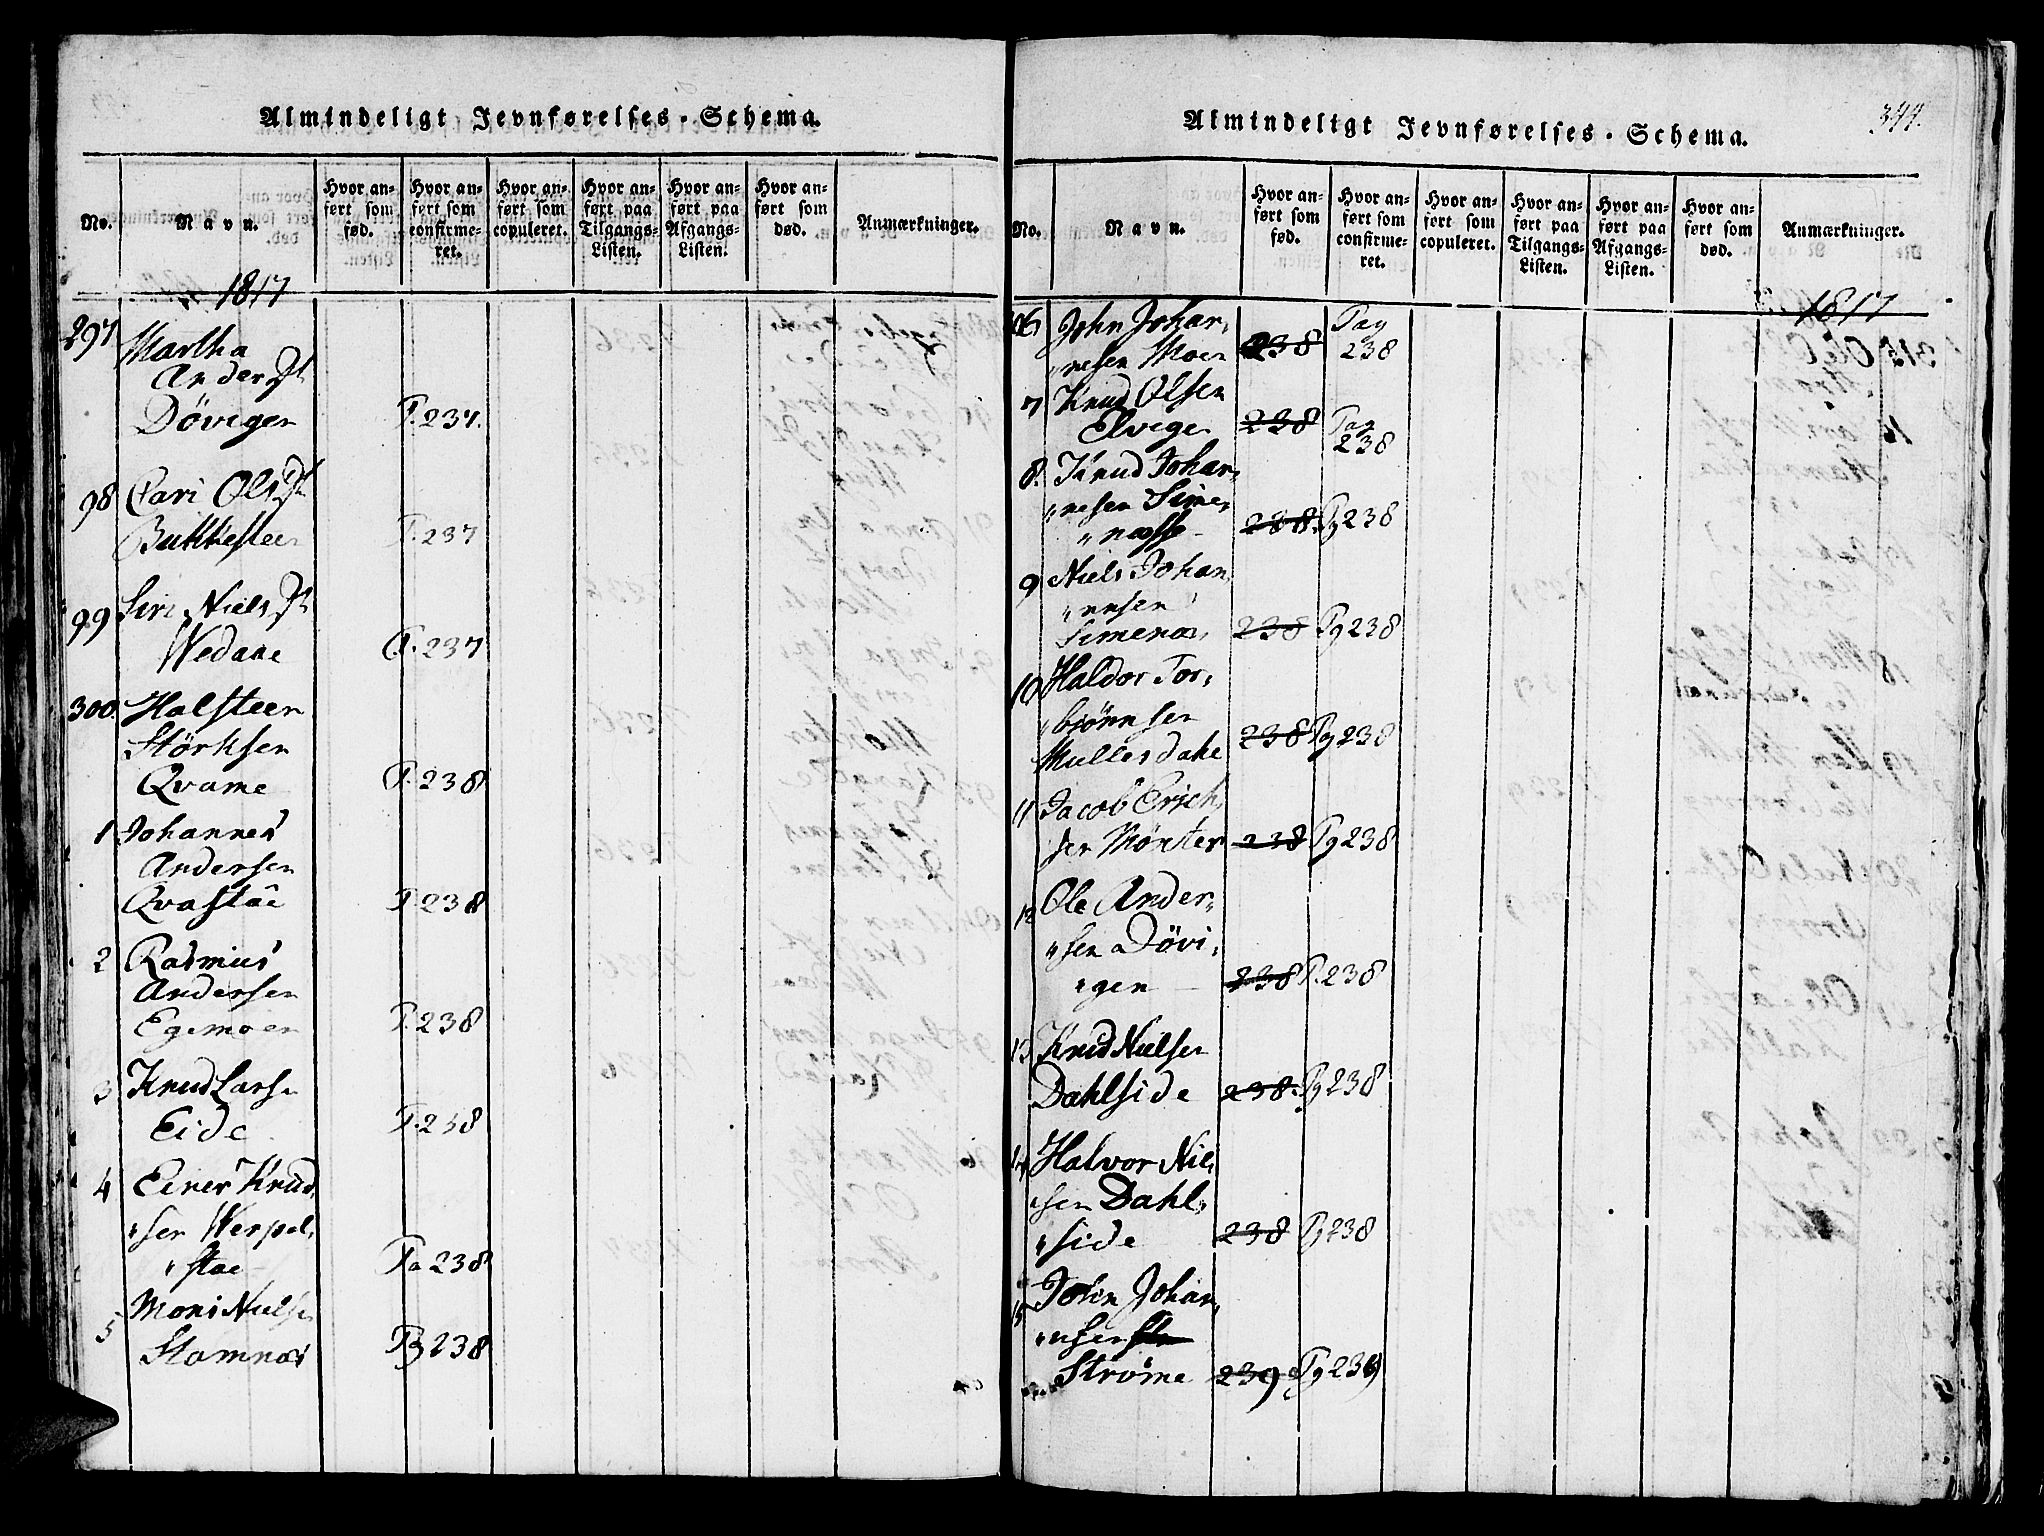 Almindeligt Jevnførelses-Schema.
No.
Navn.
Hvor anført som fød.
Hvor anført som confirmeret.
Hvor anført som copuleret.
Hvor anført paa Tilgangs-Listen.
Hvor anført paa Afgangs-Listen.
Hvor anført som død.
Anmærkninger.
1817
297 Martha
Andersdt
Dövigen P. 237.
98 Cari Olsdt
Bukkesteen P. 237
99 Siri Nielsdt
Wedaae P. 237
300. Halsteen
Störksen
Qvame P. 238
1 Johannes
Andersen
Qvastöe P. 238
2 Rasmus
Andersen
Egemoen P. 238
3 Knud Larsen
Eide P. 238
4 Einer Knud
"sen Werpel,
"stae Pa 238
Mons Nielsen
5 Stamnæs Pg 238
Almindeligt Jevnførelses-Schema.
344.
No.
Navn.
Hvor anført som fød.
Hvor anført som confirmeret.
Hvor anført som copuleret.
Hvor anført paa Tilgangs-Listen.
Hvor anført paa Afgangs-Listen.
Hvor anført som død.
Anmærkninger.
1817
06 John Johan,
"nesen Moen 238 Pag 238
7 Knud Olsen
Elvegen 238 Pag 238
8. Knud Johan,
"nesen Sime,
"næsse 238. Pg 238
9 Niels Johan,
"nsen
Simenæs 238 Pg 238
10 Haldor Tor,
"björnsen
Mullesdahe 238 Pg 238
11 Jacob Erich,
sen Mönster 238 Pg 238
12 Ole Ander,
"sen Dövi,
"gen 238 P. 238
13 Knud Nielsen
Dahlside 238. Pg 238
14 Halvor Niel
"sen Dahl,
"side 238 Pg 238
15 John Johan,
"nsen
Ströme 239 Pg 239